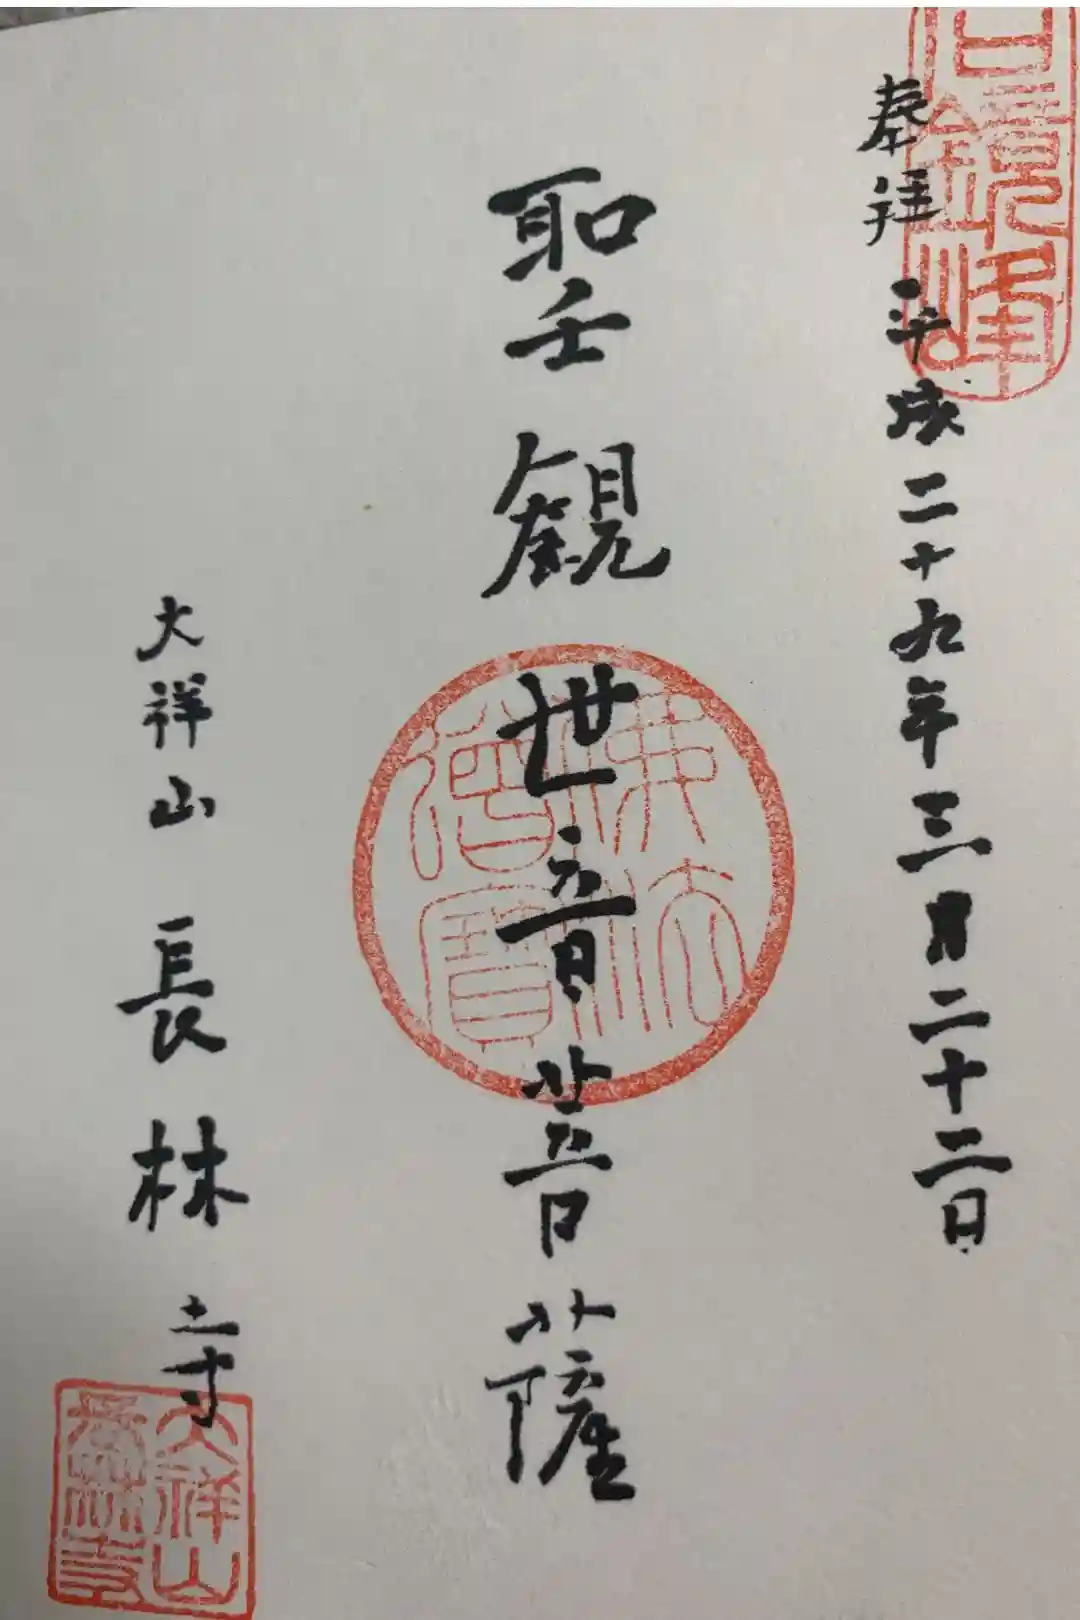 奉拝 平成二十九年三月二十二日
聖観世音菩薩
大祥山 長林寺
佛法僧寳
大祥山
長林寺